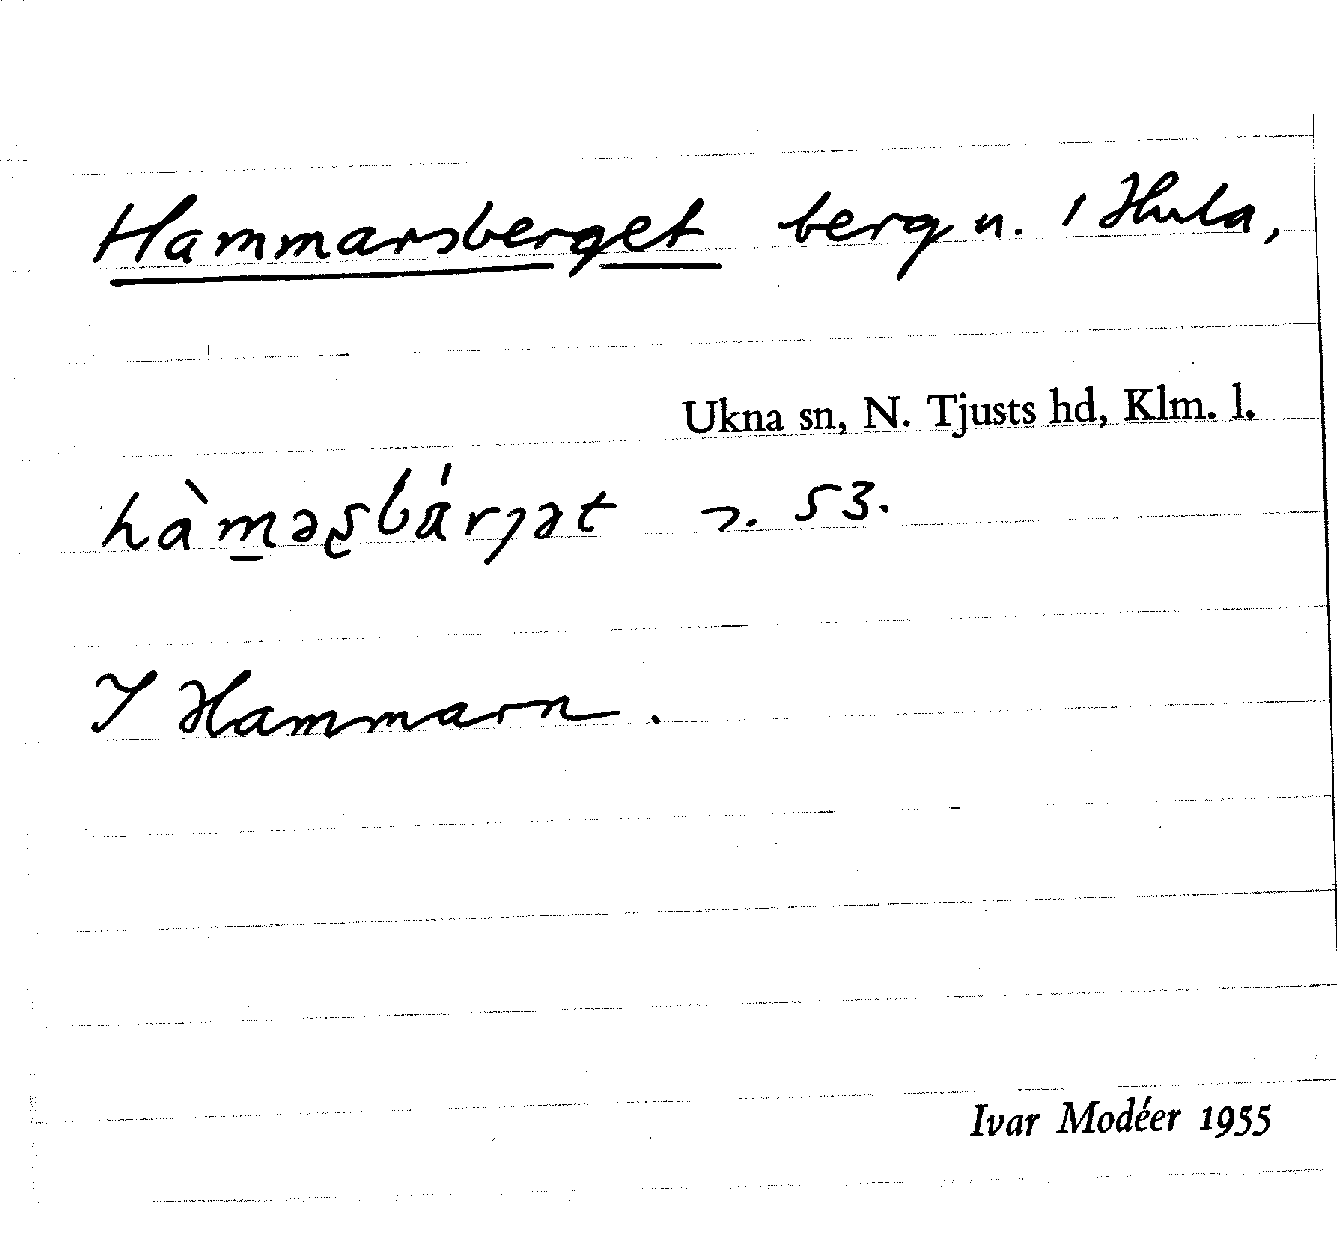 Hammarsberget berg n. i Hula,
Ukna sn, N. Tjusts hd, Klm. l.
hàm̲əʂbárȷət 53.
I Hammarn.
Ivar Modéer 1955